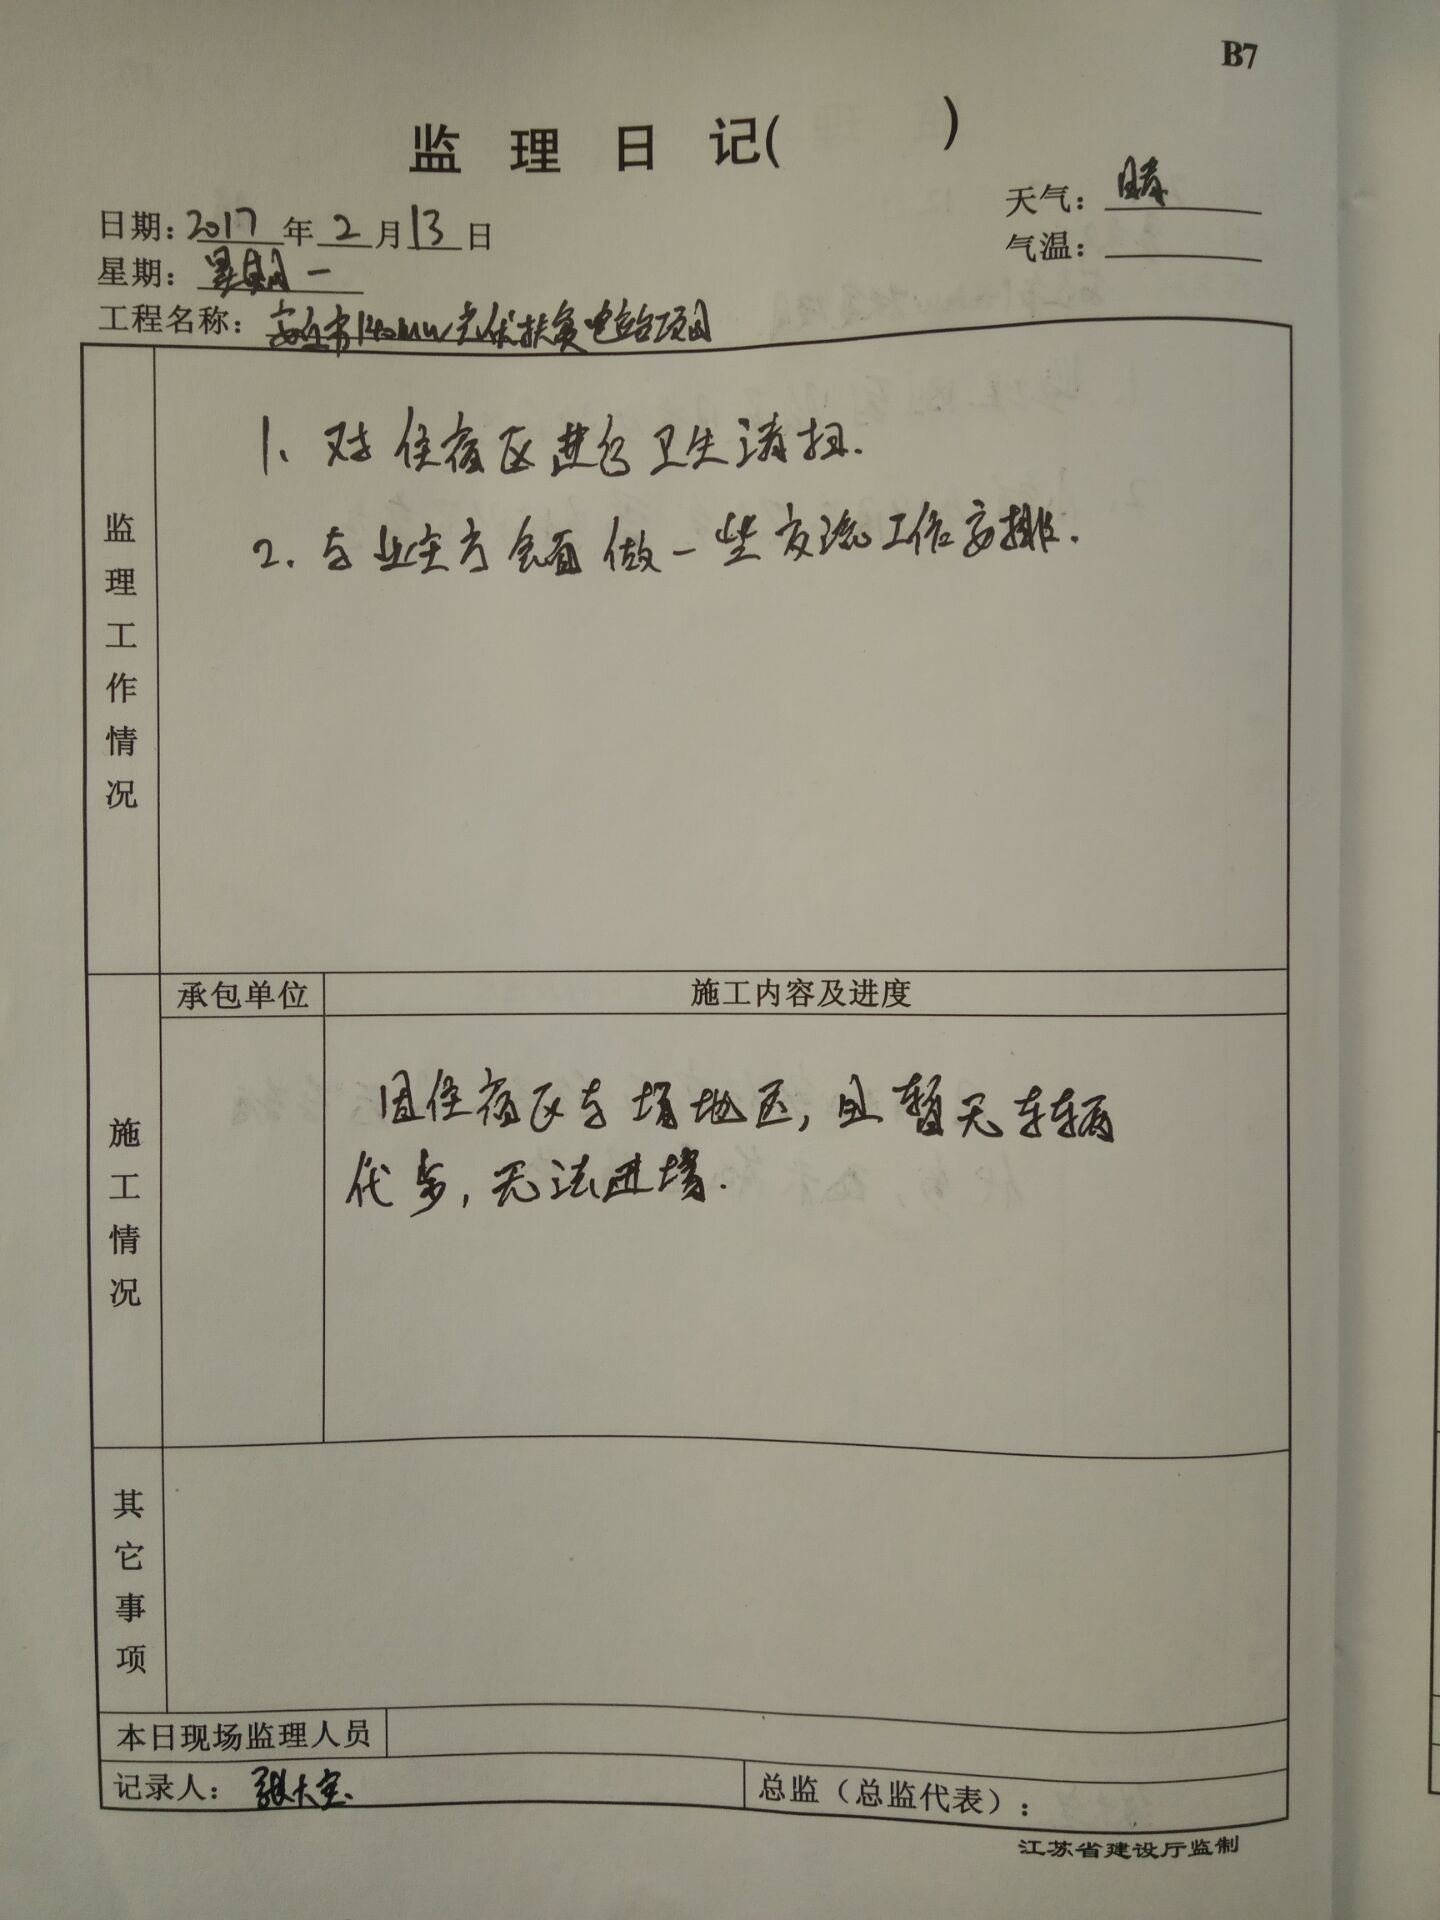 B7
监理日记( )
日期:2017年2月13日
天气:晴
星期:星期一
气温:
工程名称:安丘市140MW光伏扶贫电站项目
监理工作情况
1、对住宿区进行卫生清扫.
2.与业主方会面做一些交流工作安排.
承包单位
施工内容及进度
施工情况
因住宿区与场地远,且暂无车辆
代步,无法进场.
其它事项
本日现场监理人员
记录人:张大宝
总监(总监代表):
江苏省建设厅监制